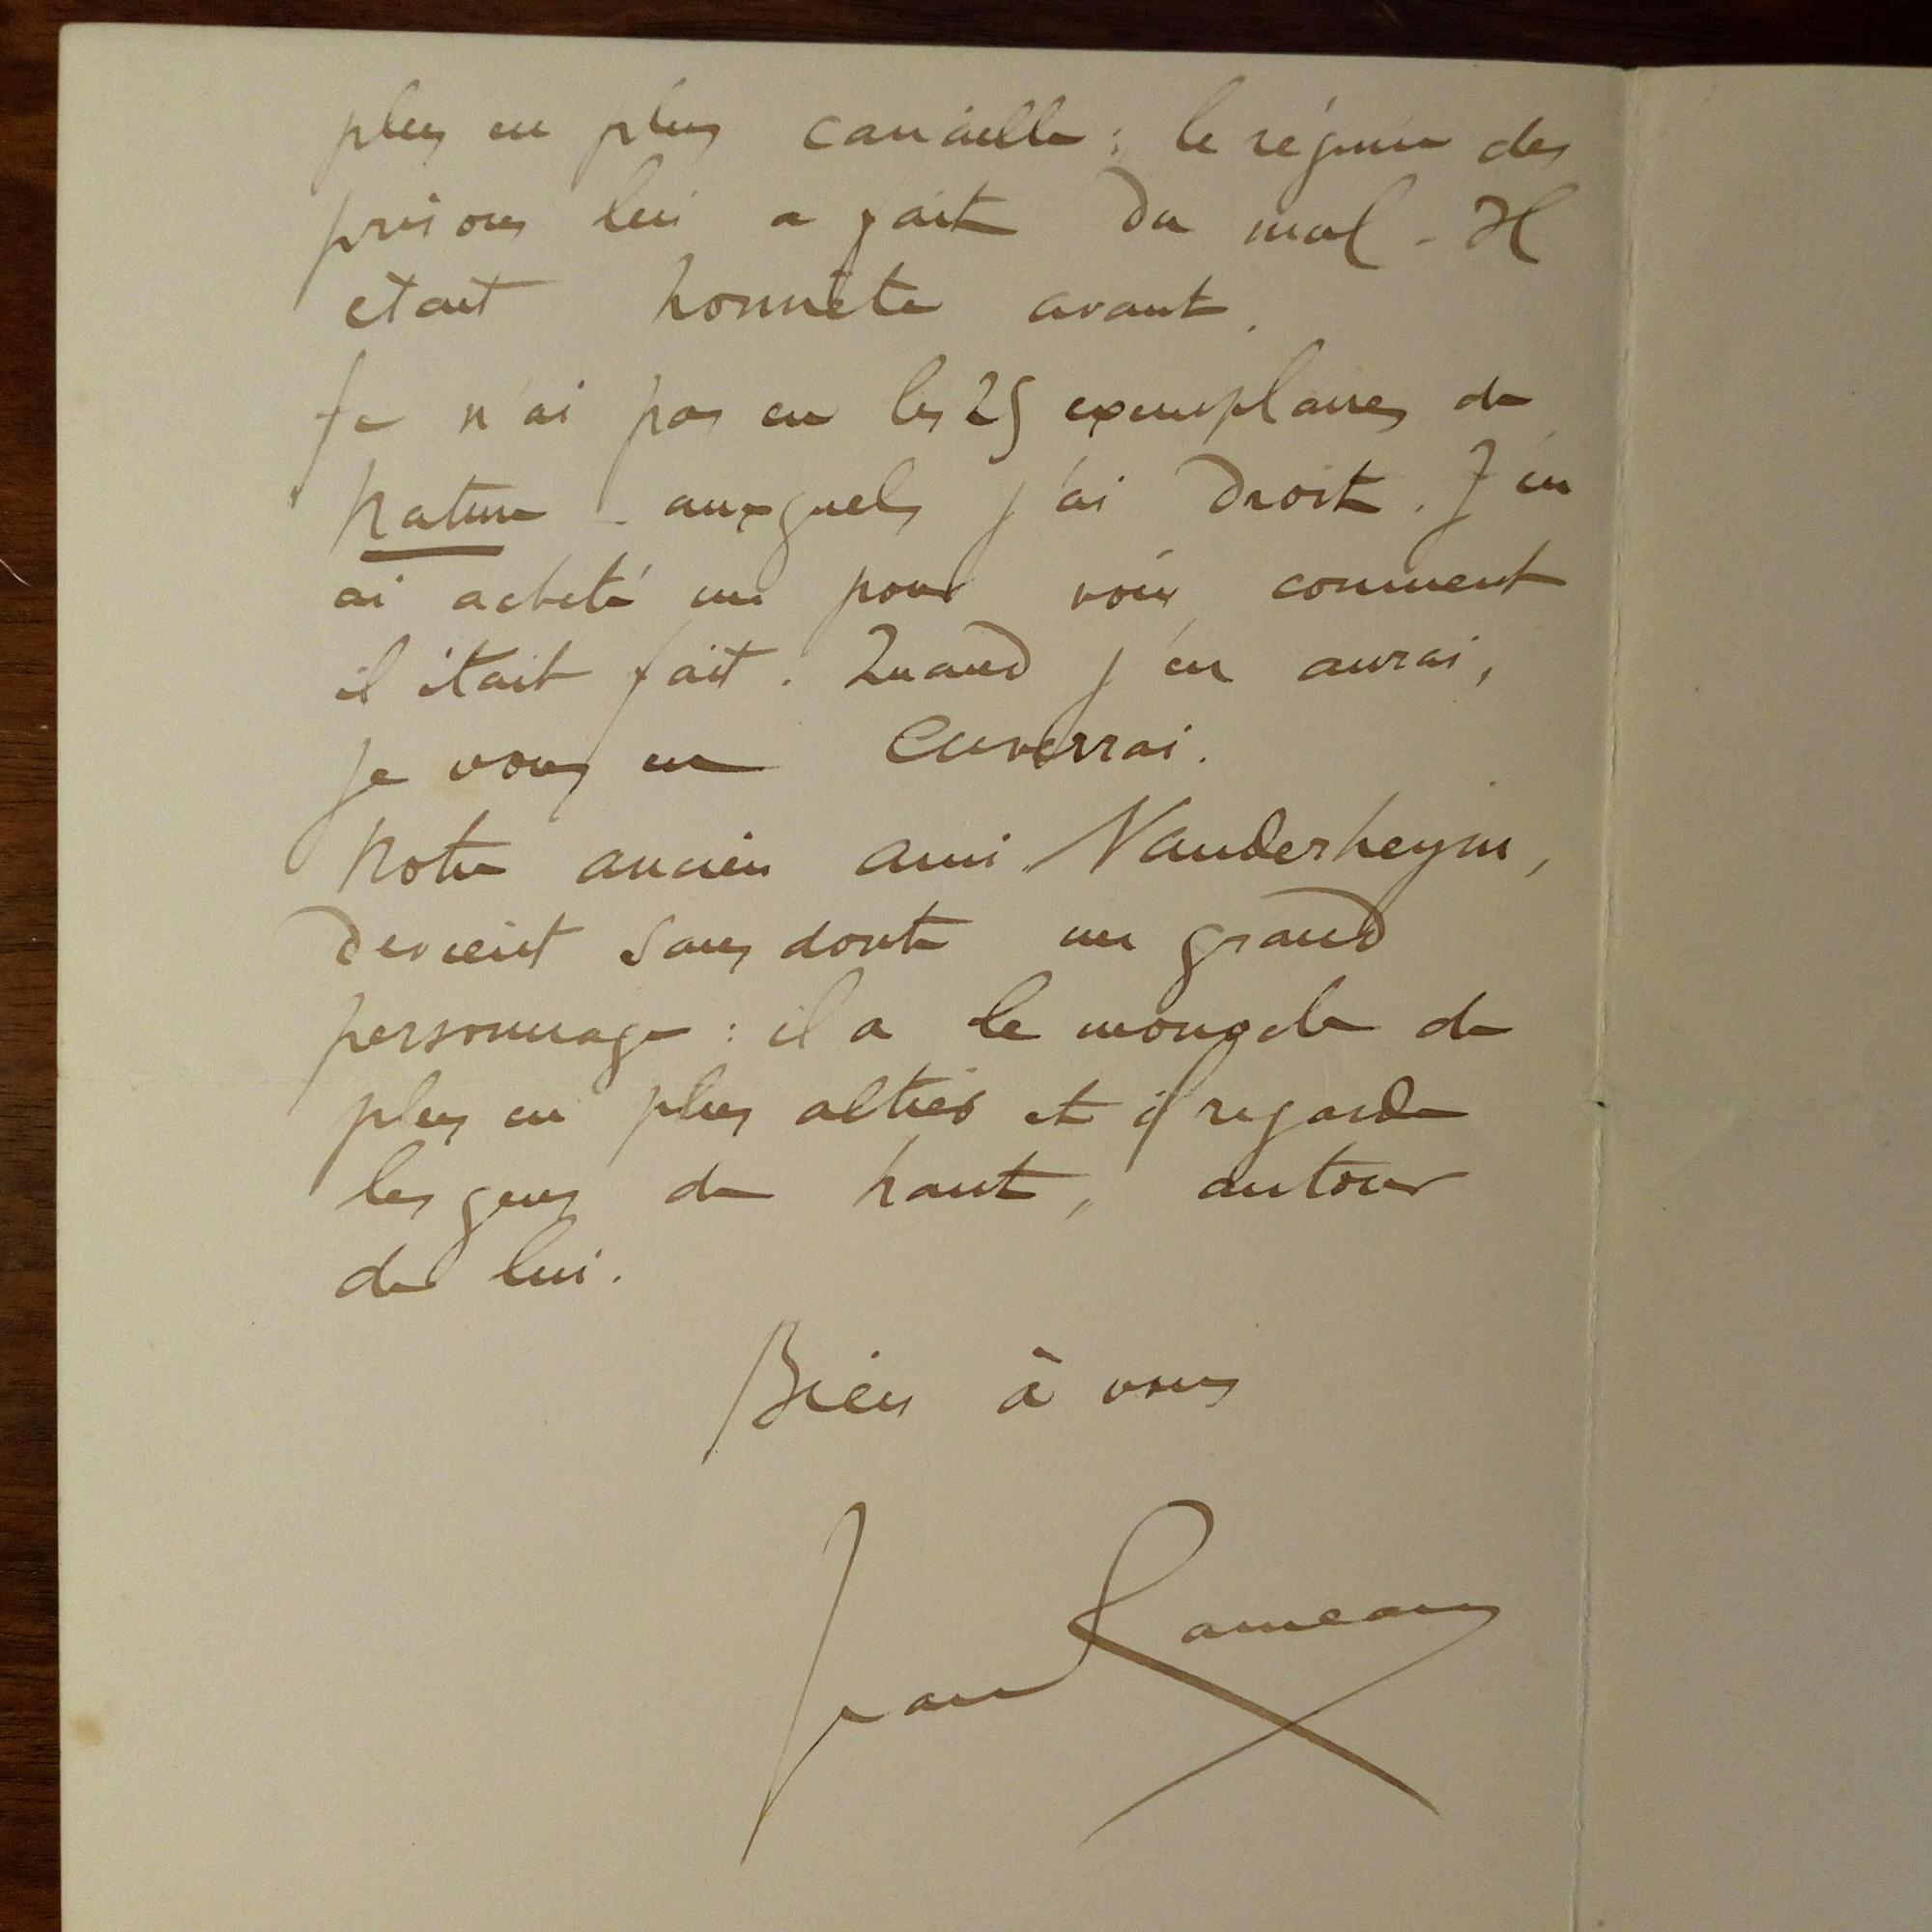 plus en plus canaille : le régime des
prisons lui a fait du mal - Il
était honnête avant.
Je n'ai pas eu les 25 exemplaires de
Nature auxquels j'ai droit. J'en
ai acheté un pour voir comment
il était fait. Quand j'en aurai,
je vous en enverrai.
Notre ancien ami Vanderheym,
devient sans doute un grand
personnage : il a le monocle de
plus en plus altier et il regarde
les gens de haut, autour
de lui.
Bien à vous
Jean Rameau